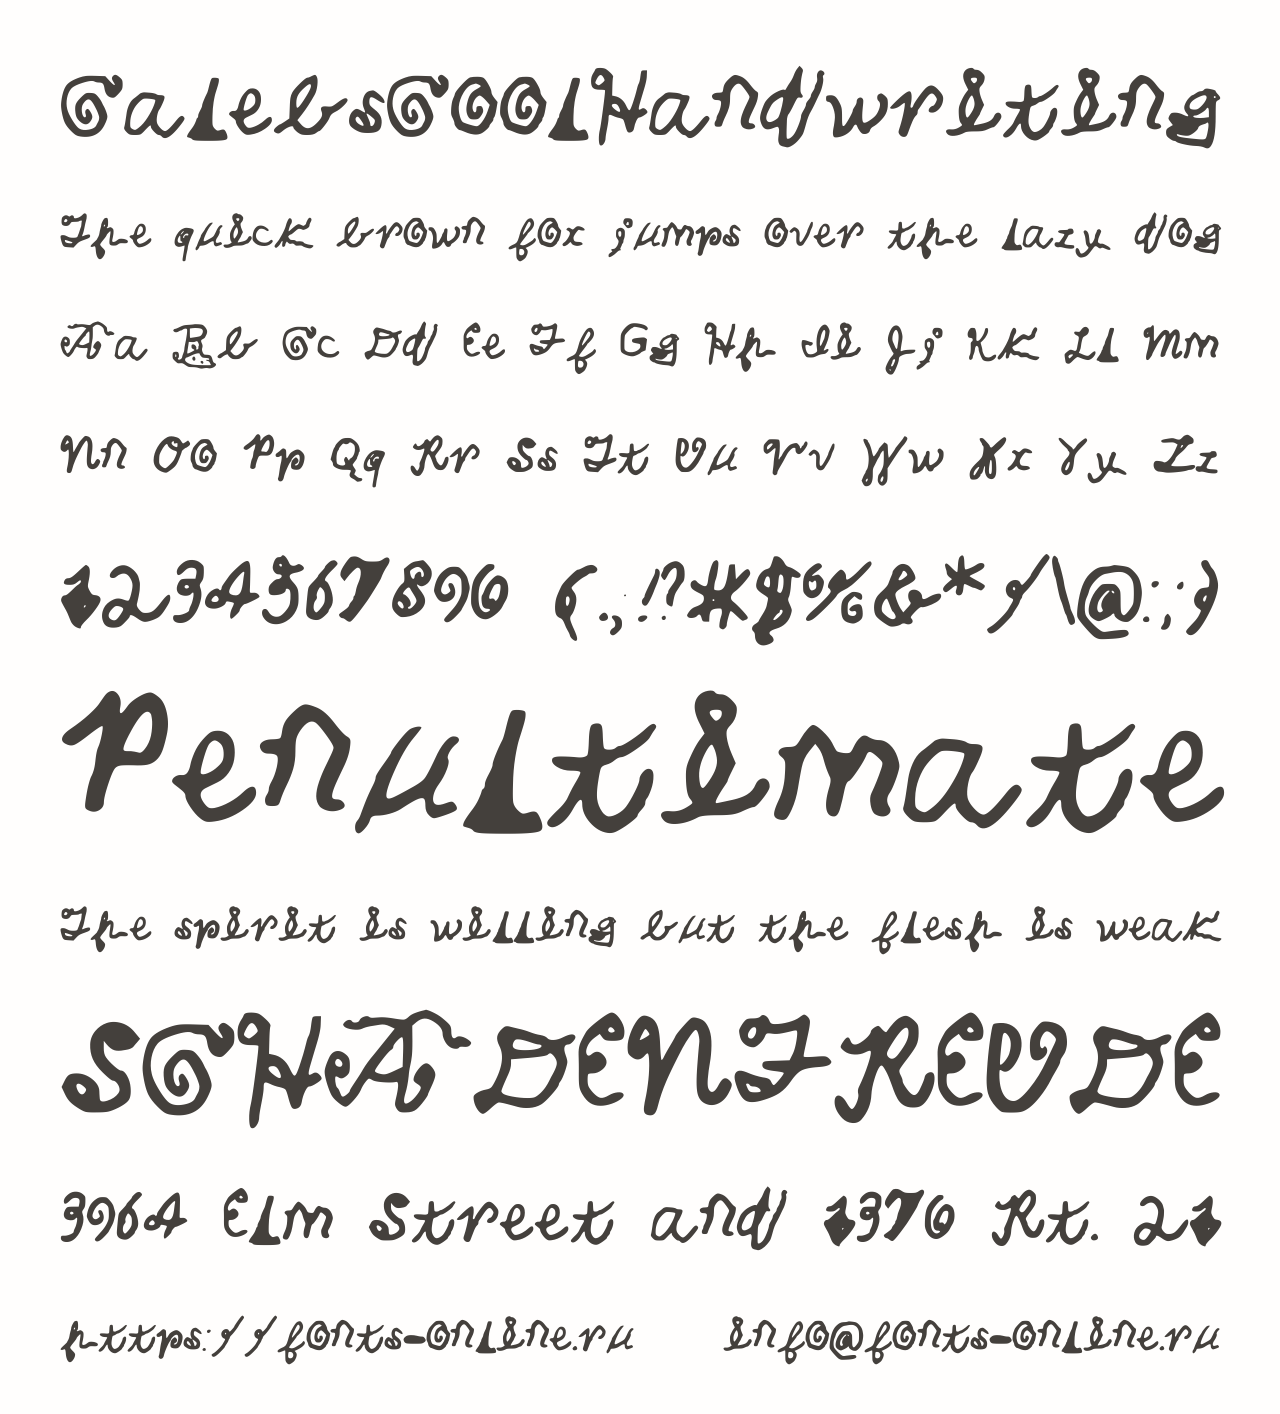 CalebsCOOlHandwriting
The quick brown fox jumps over the lazy dog
Aa Bb Cc Dd Ee Ff Gg Hh Ii Jj Kk Ll Mm
Nn Oo Pp Qq Rr Ss Tt Uu Vv Ww Xx Yy Zz
1234567890 (.,'!?#$%&*/\@:;)
Penultimate
The spirit is willing but the flesh is weak
SCHADENFREUDE
3964 Elm Street and 1370 Rt. 21
https://fonts-online.ru info@fonts-online.ru